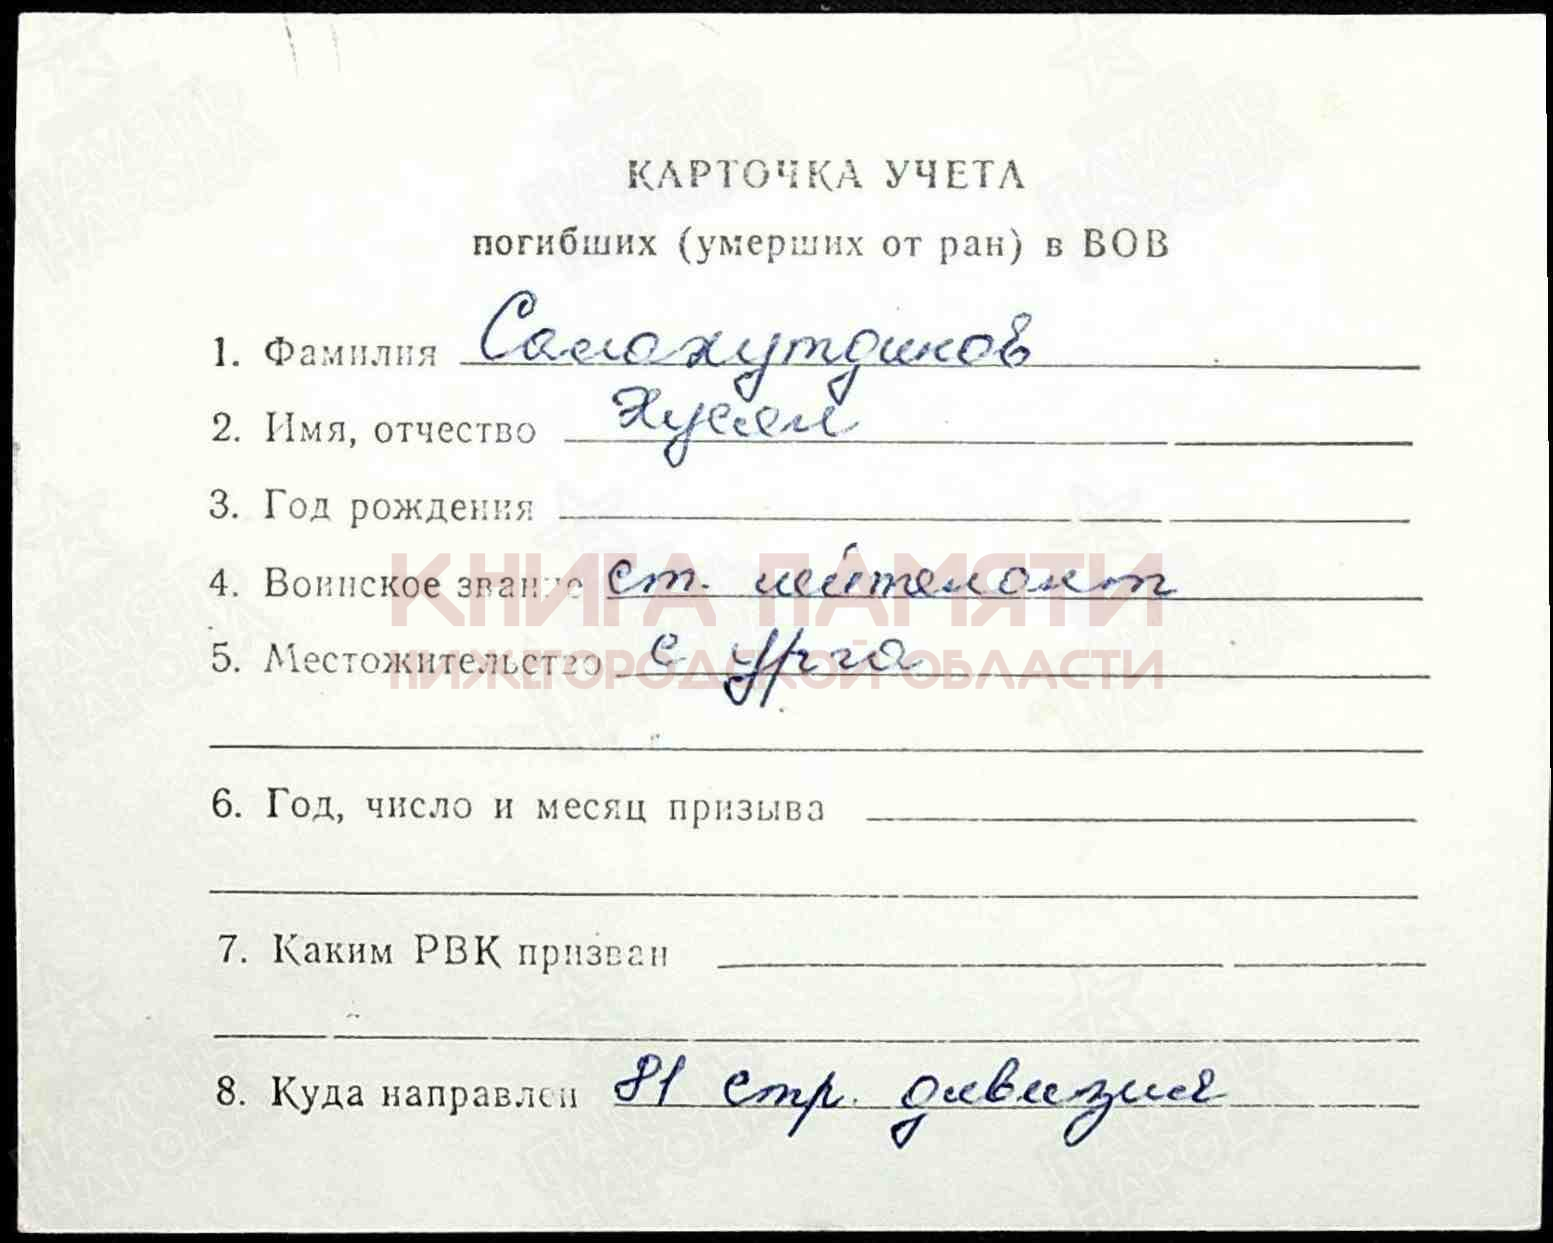 КАРТОЧКА УЧЕТА
погибших (умерших от ран) в ВОВ
1. Фамилия Салахутдинов
2. Имя, отчество Хусеи
3. Год рождения
КНИГА ПАМЯТИ
4. Воинское звание ст. лейтенант
5. Местожительство с Урга
НИЖЕГОРОДСКОЙ ОБЛАСТИ
6. Год, число и месяц призыва
7. Каким РВК призван
8. Куда направлен 81 стр. дивизия